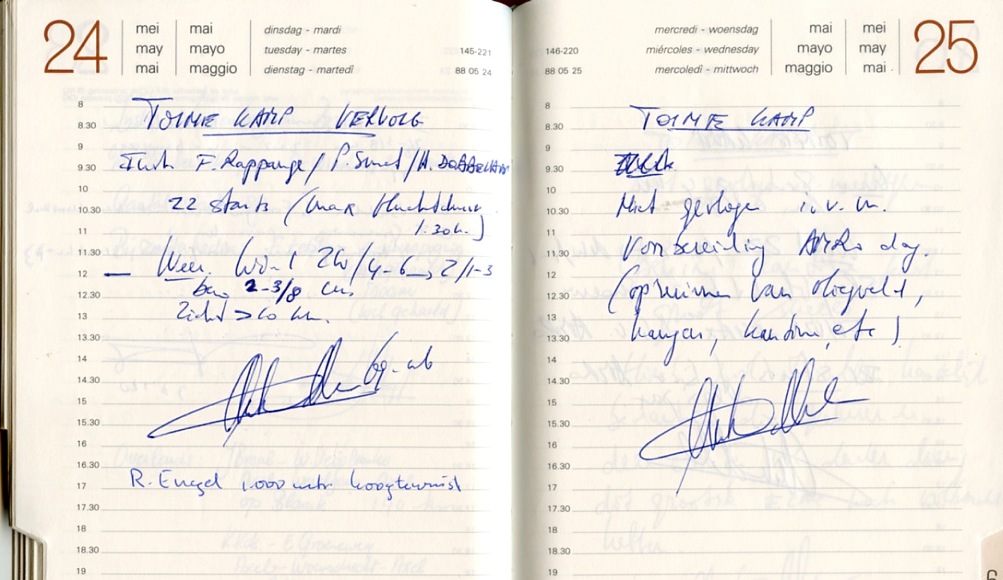 24
mei mai dinsdag - mardi
may mayo tuesday - martes 145-221
mai maggio dienstag - martedì 88 05 24
8
TOME KAMP VERVOLG
8.30
9
Inst. F. Rappange / P. Smet / H.
9.30
10
22 starts (max vluchtduur
10.30
1.30 h.)
11
11.30
— Weer. Wind ZW/4-6 → Z/1-3
12
2-3/8 cu.
12.30
Zicht > 10 km.
13
13.30
14
14.30
15
15.30
16
16.30
R. Engel 1000 mtr hoogtewinst
17
17.30
18
18.30
19
mercredi - woensdag mai mei
146-220 miércoles - wednesday mayo may
88 05 25 mercoledì - mittwoch maggio mai
25
8
TOME KAMP
8.30
9
9.30
10
Niet gevlogen i.v.m.
10.30
11
Voorbereiding day.
11.30
12
(opruimen van vliegveld,
12.30
13
hangar, kantine, etc)
13.30
14
14.30
15
15.30
16
16.30
17
17.30
18
18.30
19